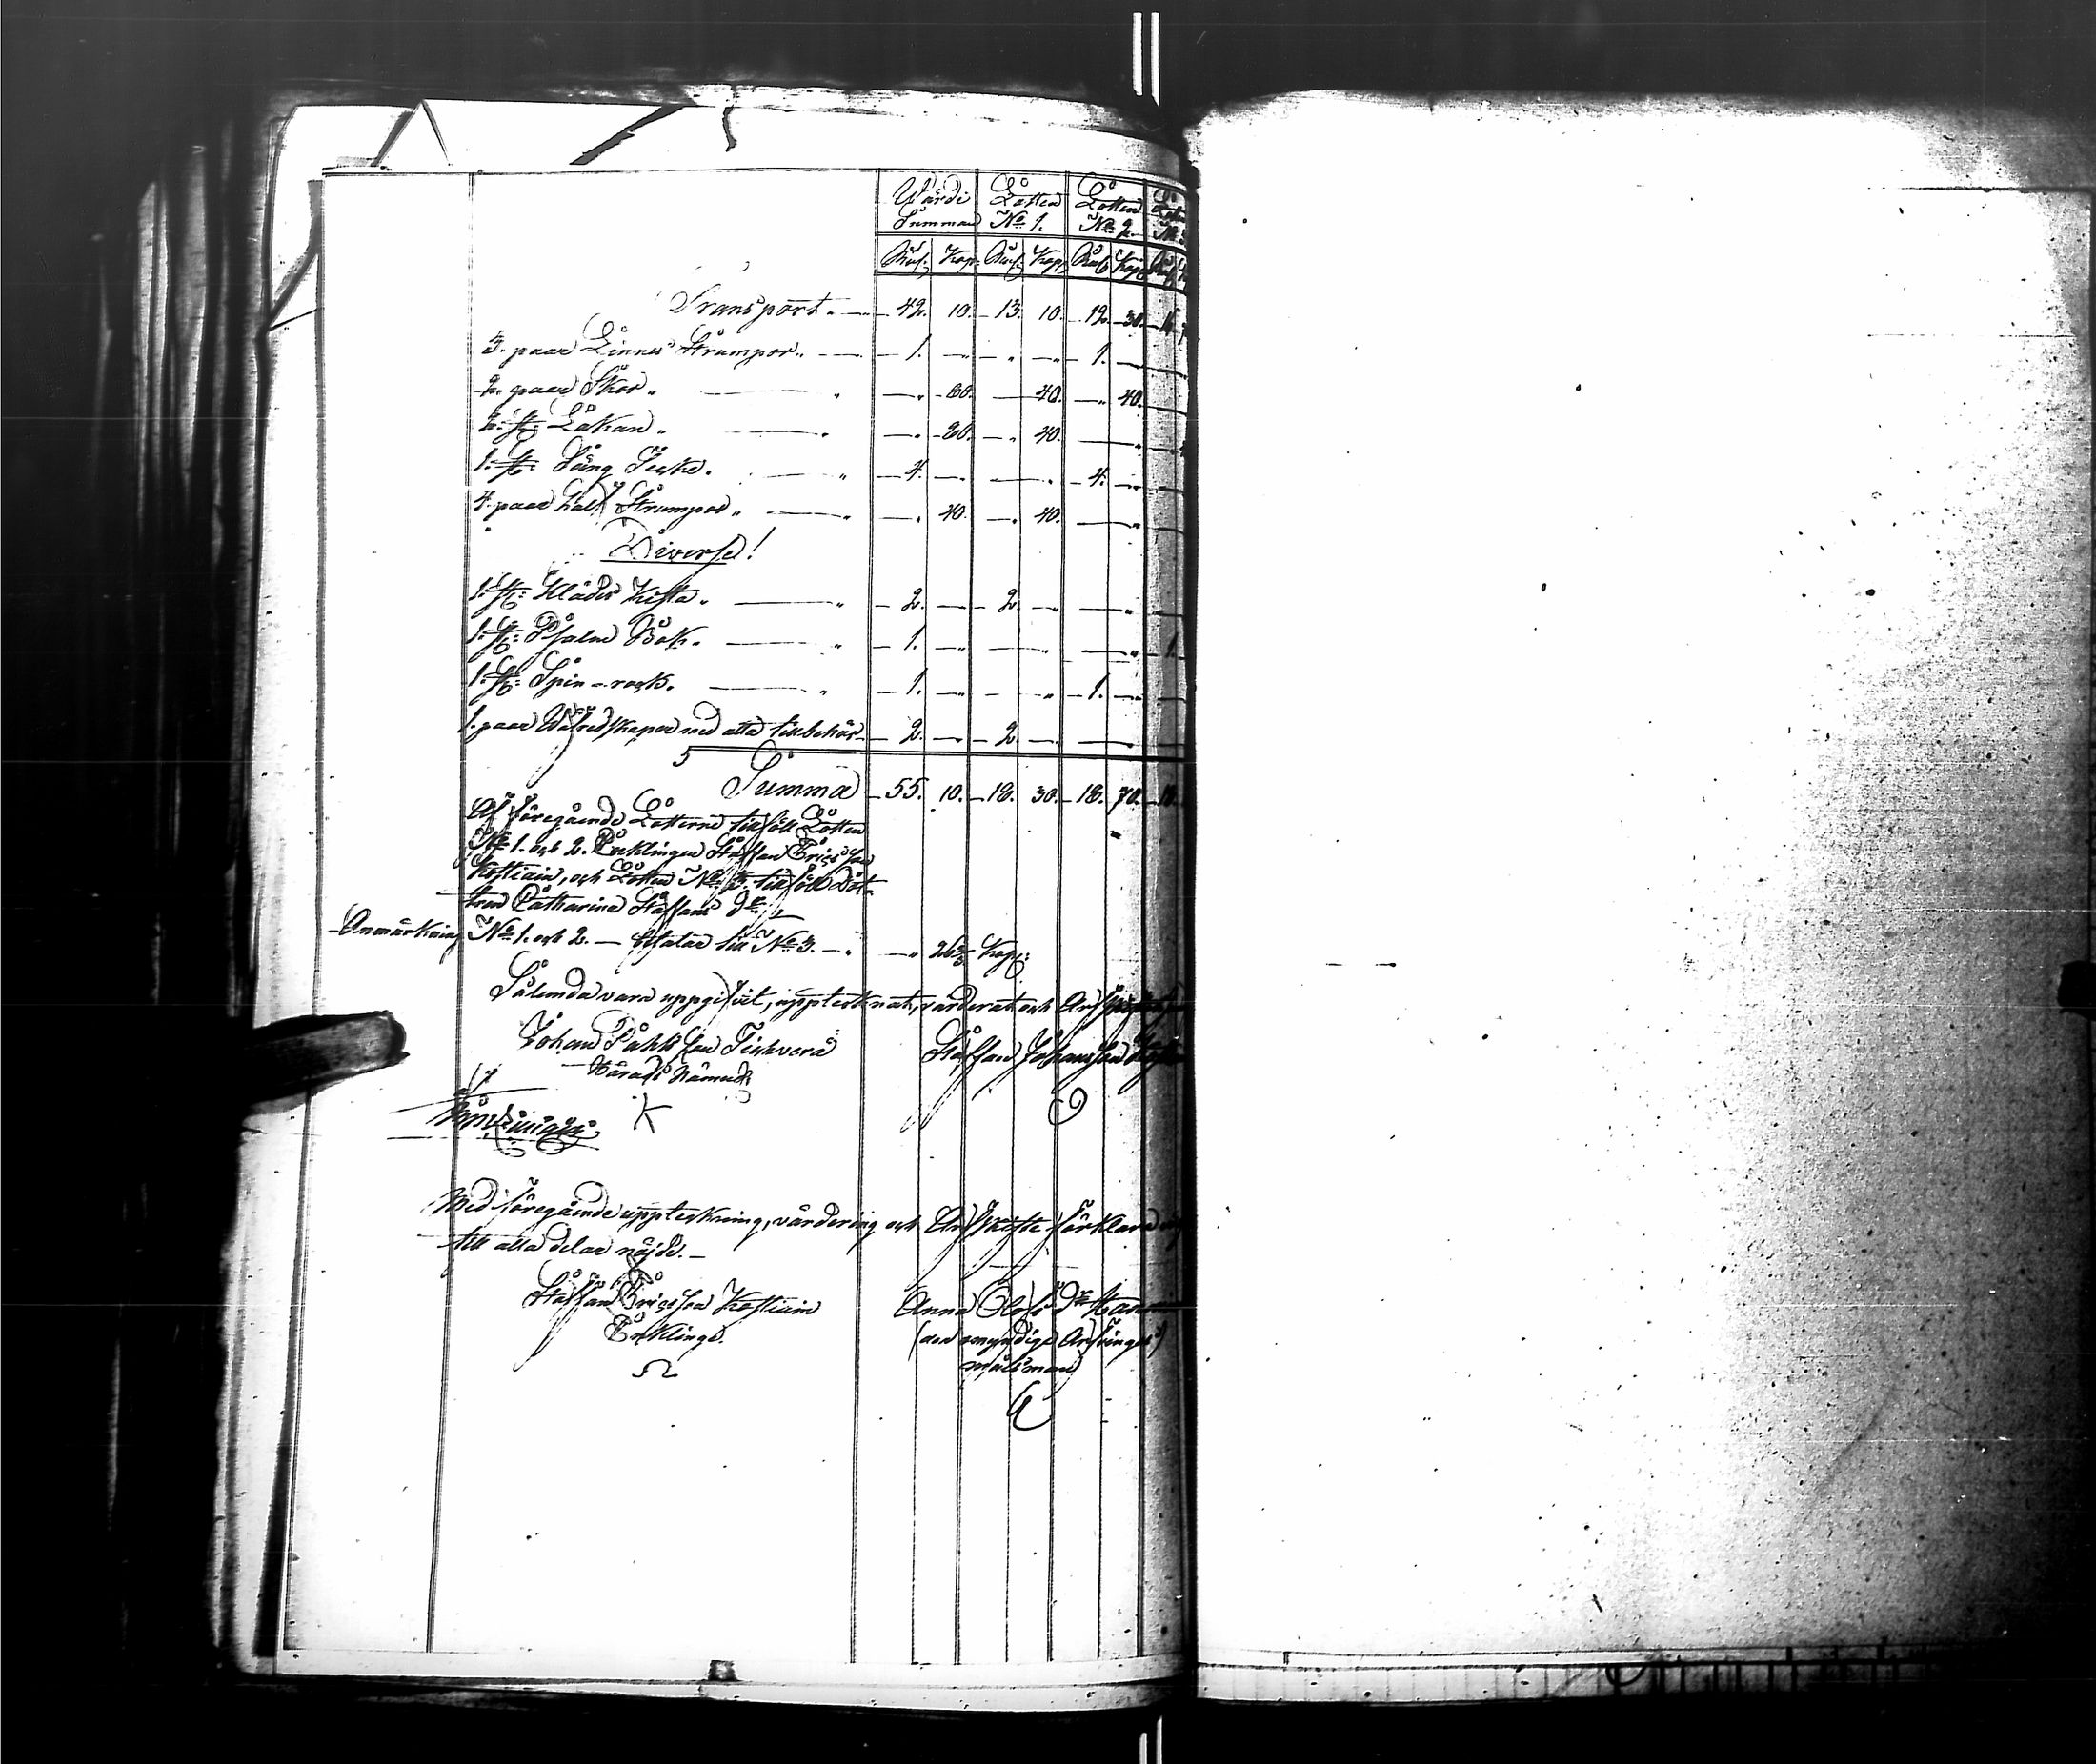 Wärdi Summan | Lotten No 1. | Lotten No 2. | Lotten No
Rub: Kop: Rub: Kop: Rub: Kop: Rub:
Transport. — 42. 10. 13. 10. 12. 30.
3. paar Linnes Strumpor. — 1. — — — 1. —
2. paar Skor. — — 80. — 40. — 40.
2. st: Lakan. — — 80. — 40. —
1. st: Säng — 4. — — — 4. —
4. paar half Strumpor. — — 40. — 40. —
Diverse!
1. st: Kläder Kista. — 2. — 2. — —
1. st: Psalm Bok. — 1. — — — — 1.
1. st: Spin-rock. — 1. — — — 1. —
1. paar med alla tillbehör — 2. — 2. — —
Summa 55. 10. 18. 30. 18. 70. 18.
Af föregående Lotterne tillföll Lotten
No 1. och 2. Enklingen Staffan Ericsson
Kostiain, och Lotten No 3. tillföll Dot-
tren Catharina Staffans dr
Anmärkning No 1. och 2. — betalar till No 3. — — 26 2/3 Kop:
Sålunda vara uppgifvit, upptecknat, värderat och
Johan Påhlsson Staffan Johansson
Härads Nämnd:
Med föregående uppteckning, värdering och Arfskifte förklara
till alla delar nöjde. —
Staffan Ericsson Kostiain Anna Olofs dr
Enkling. (den omyndige Arfvinges)
målsman